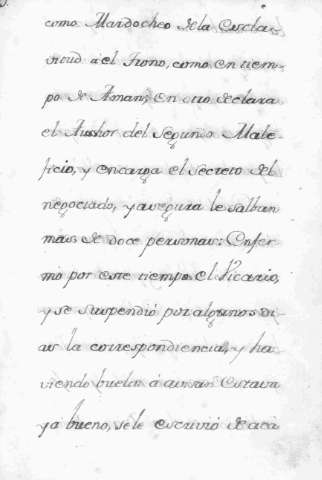 como Mardocheo de la Esclav
itud á el Trono, como en tiem-
po de Aman; en otro declara
el Author del Segundo Male-
ficio, y encarga el secreto del
negociado, y asegura le saltan
mas de doce personas: Enfer
mó por este tiempo el Vicario,
y se suspendió por algunos di-
as la correspondiencia, y ha
viendo buelto á avisar Estava
ya bueno, se le escrivió de acá